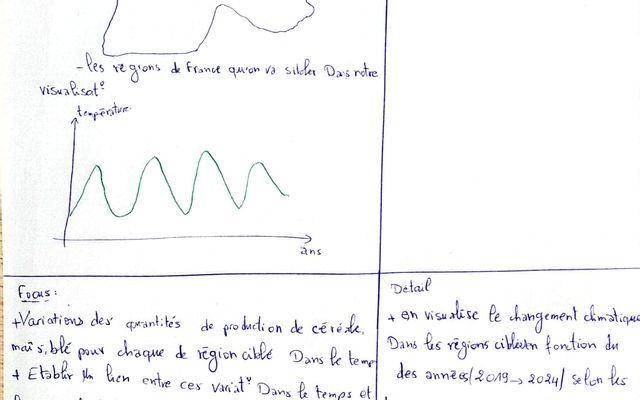 - les régions de France qu'on va sibler Dans notre
visualisat°
température
ans
Focus :
+ Variations des quantités de production de céréale,
maïs, blé pour chaque de région ciblé Dans le temp
+ Etablir un lien entre ces variat° Dans le temps et
Detail
+ on visualise le changement climatique
Dans les régions cibles en fonction du
des années (2019 → 2024) selon les